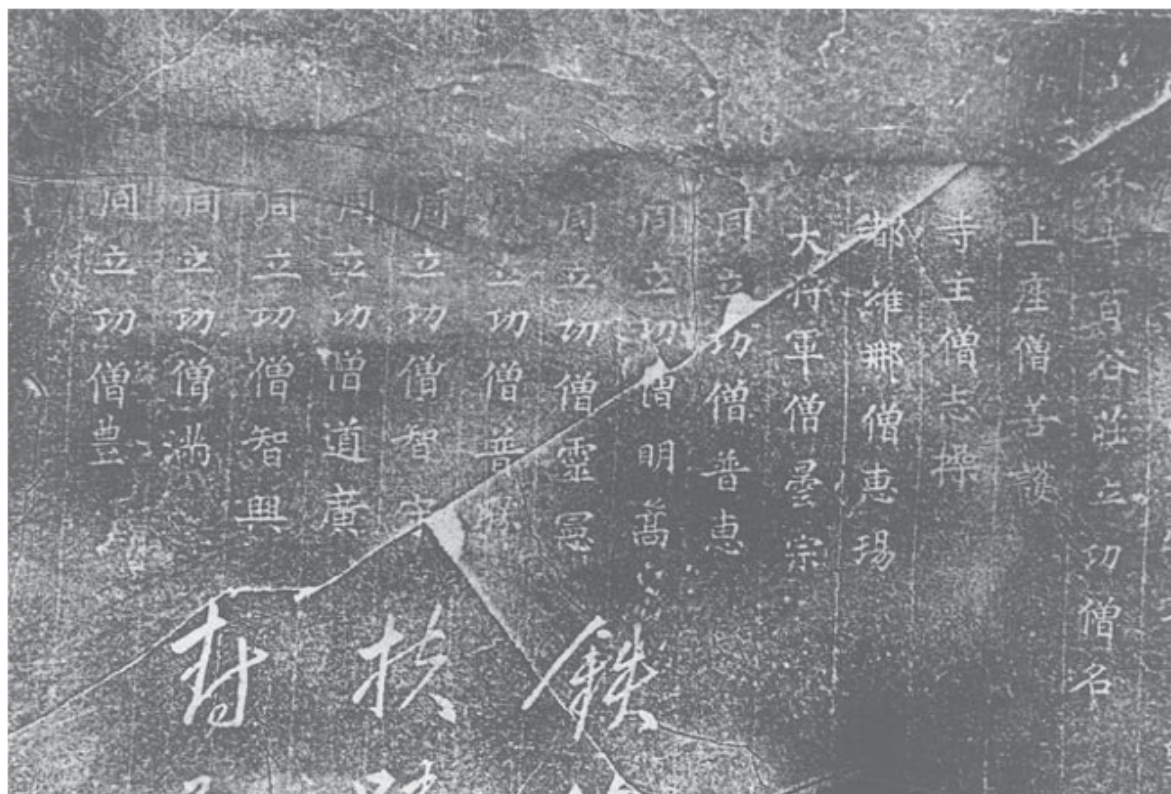 林寺百谷莊立功僧名
上座僧善護
寺主僧志操
都維那僧惠瑒
大將軍僧曇宗
同立功僧普惠
同立功僧明嵩
同立功僧靈憲
立功僧普
同立功僧智守
同立功僧道廣
同立功僧智興
同立功僧滿
同立功僧豊
鐵
扶